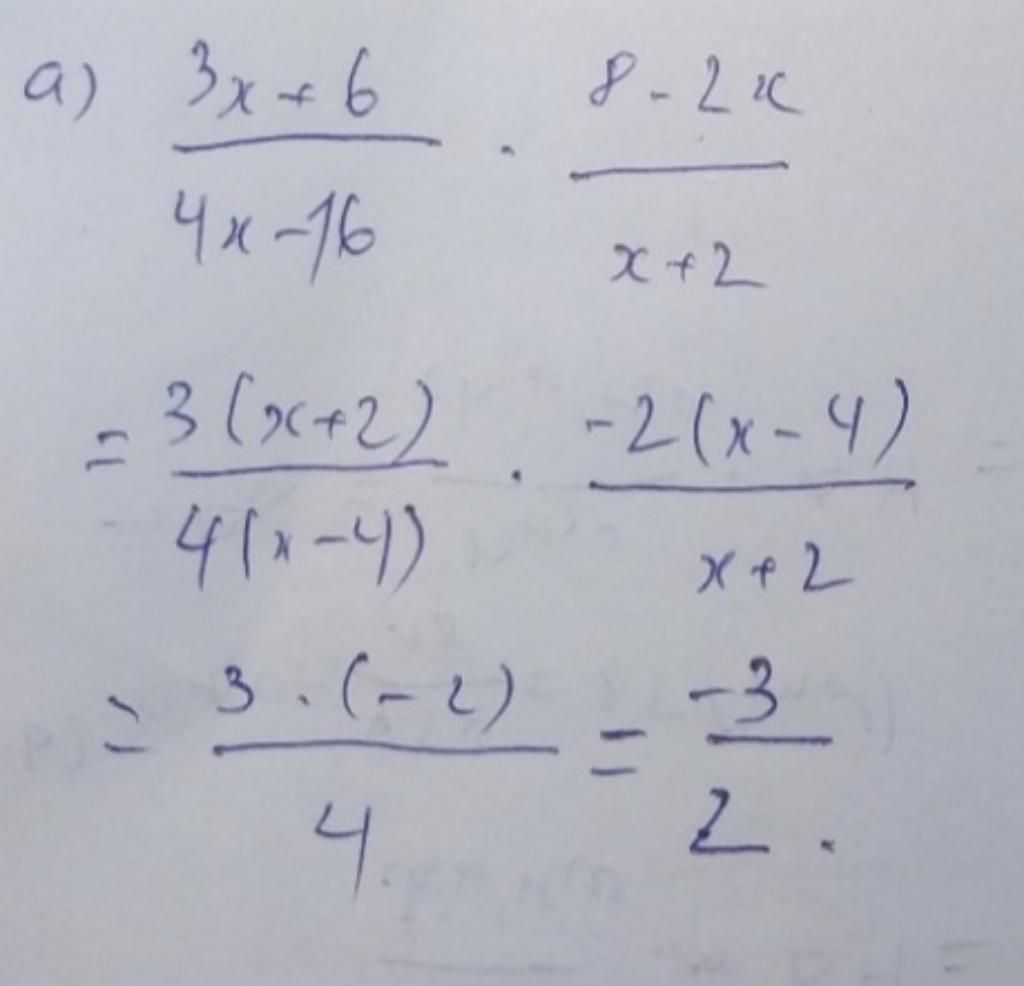 a) \frac{3x+6}{4x-16} \cdot \frac{8-2x}{x+2}
= \frac{3(x+2)}{4(x-4)} \cdot \frac{-2(x-4)}{x+2}
= \frac{3 \cdot (-2)}{4} = \frac{-3}{2}.